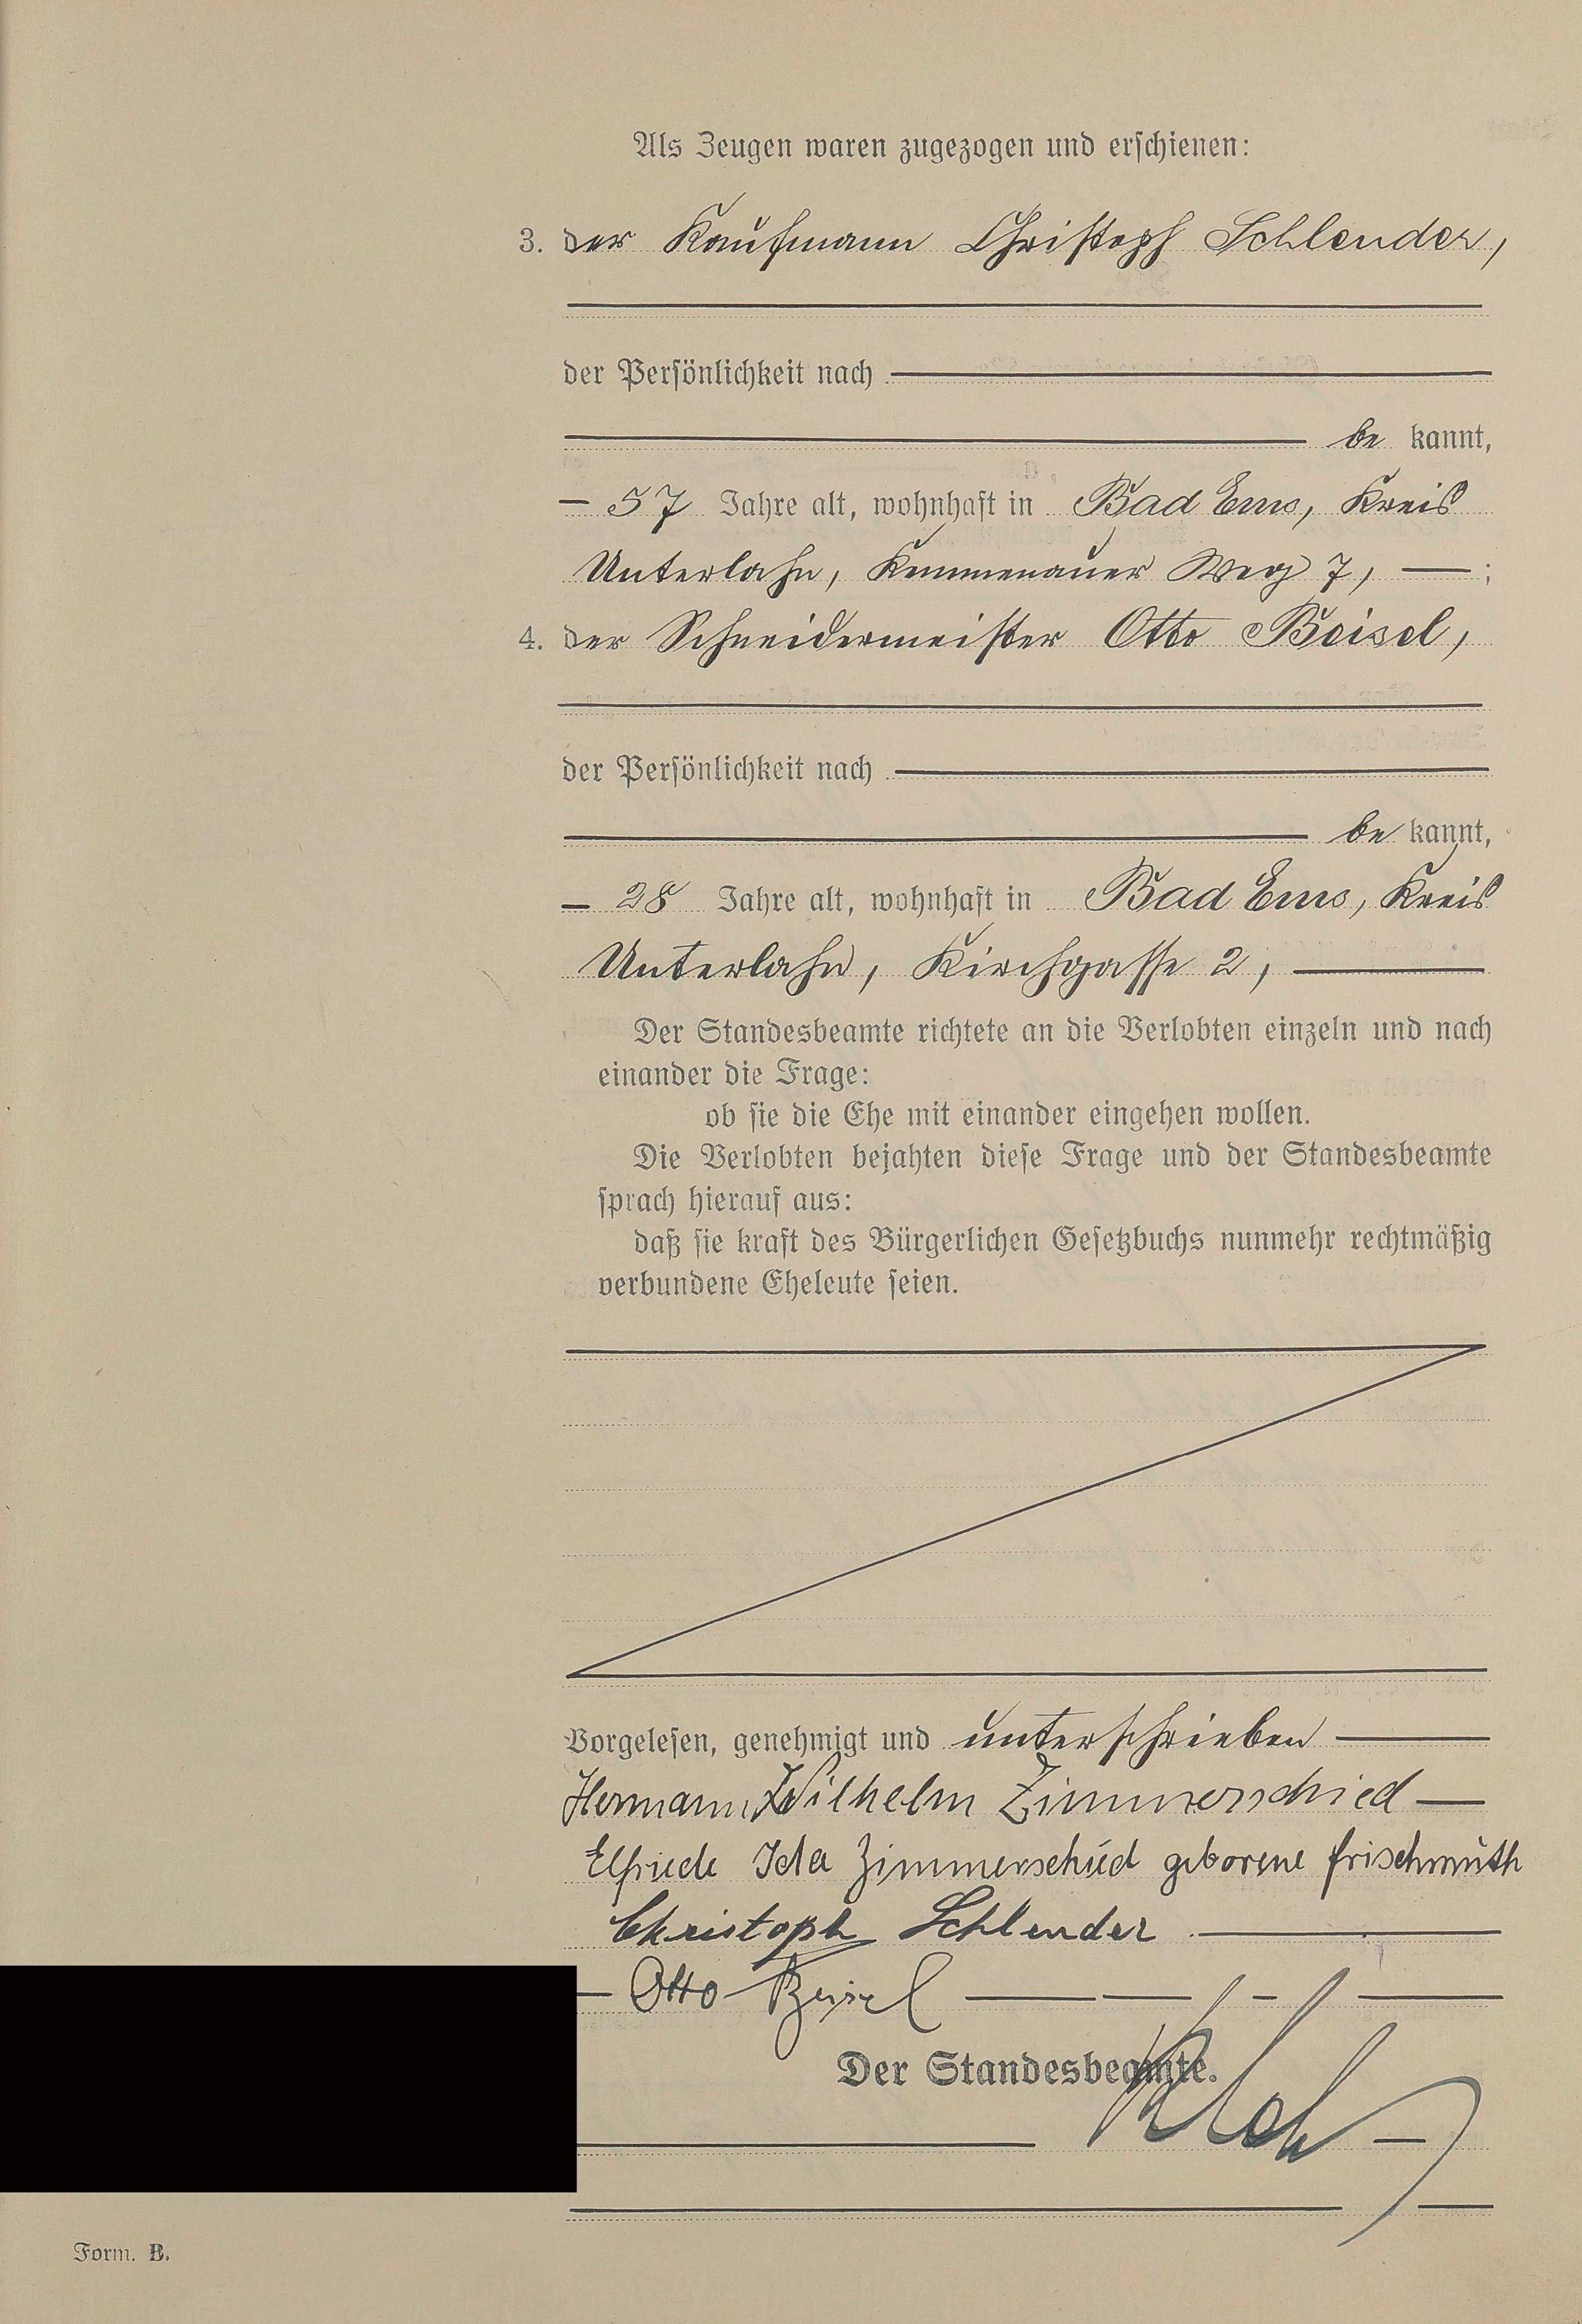 Als Zeugen waren zugezogen und erschienen:
3. der Kaufmann Christoph Schlender,
der Persönlichkeit nach
be kannt,
– 57 Jahre alt, wohnhaft in Bad Ems, Kreis
Unterlahn, Kemmenauer Weg 7, — ;
4. der Schneidermeister Otto Beisel,
der Persönlichkeit nach
be kannt,
– 28 Jahre alt, wohnhaft in Bad Ems, Kreis
Unterlahn, Kirchgasse 2, —
Der Standesbeamte richtete an die Verlobten einzeln und nach
einander die Frage:
ob sie die Ehe mit einander eingehen wollen.
Die Verlobten bejahten diese Frage und der Standesbeamte
sprach hierauf aus:
daß sie kraft des Bürgerlichen Gesetzbuchs nunmehr rechtmäßig
verbundene Eheleute seien.
Vorgelesen, genehmigt und unterschrieben —
Hermann Wilhelm Zimmerschied —
Elfriede Ida Zimmerschied geborene Frischmuth
Christoph Schlender —
– Otto Beisel —
Der Standesbeamte.
Form. B.